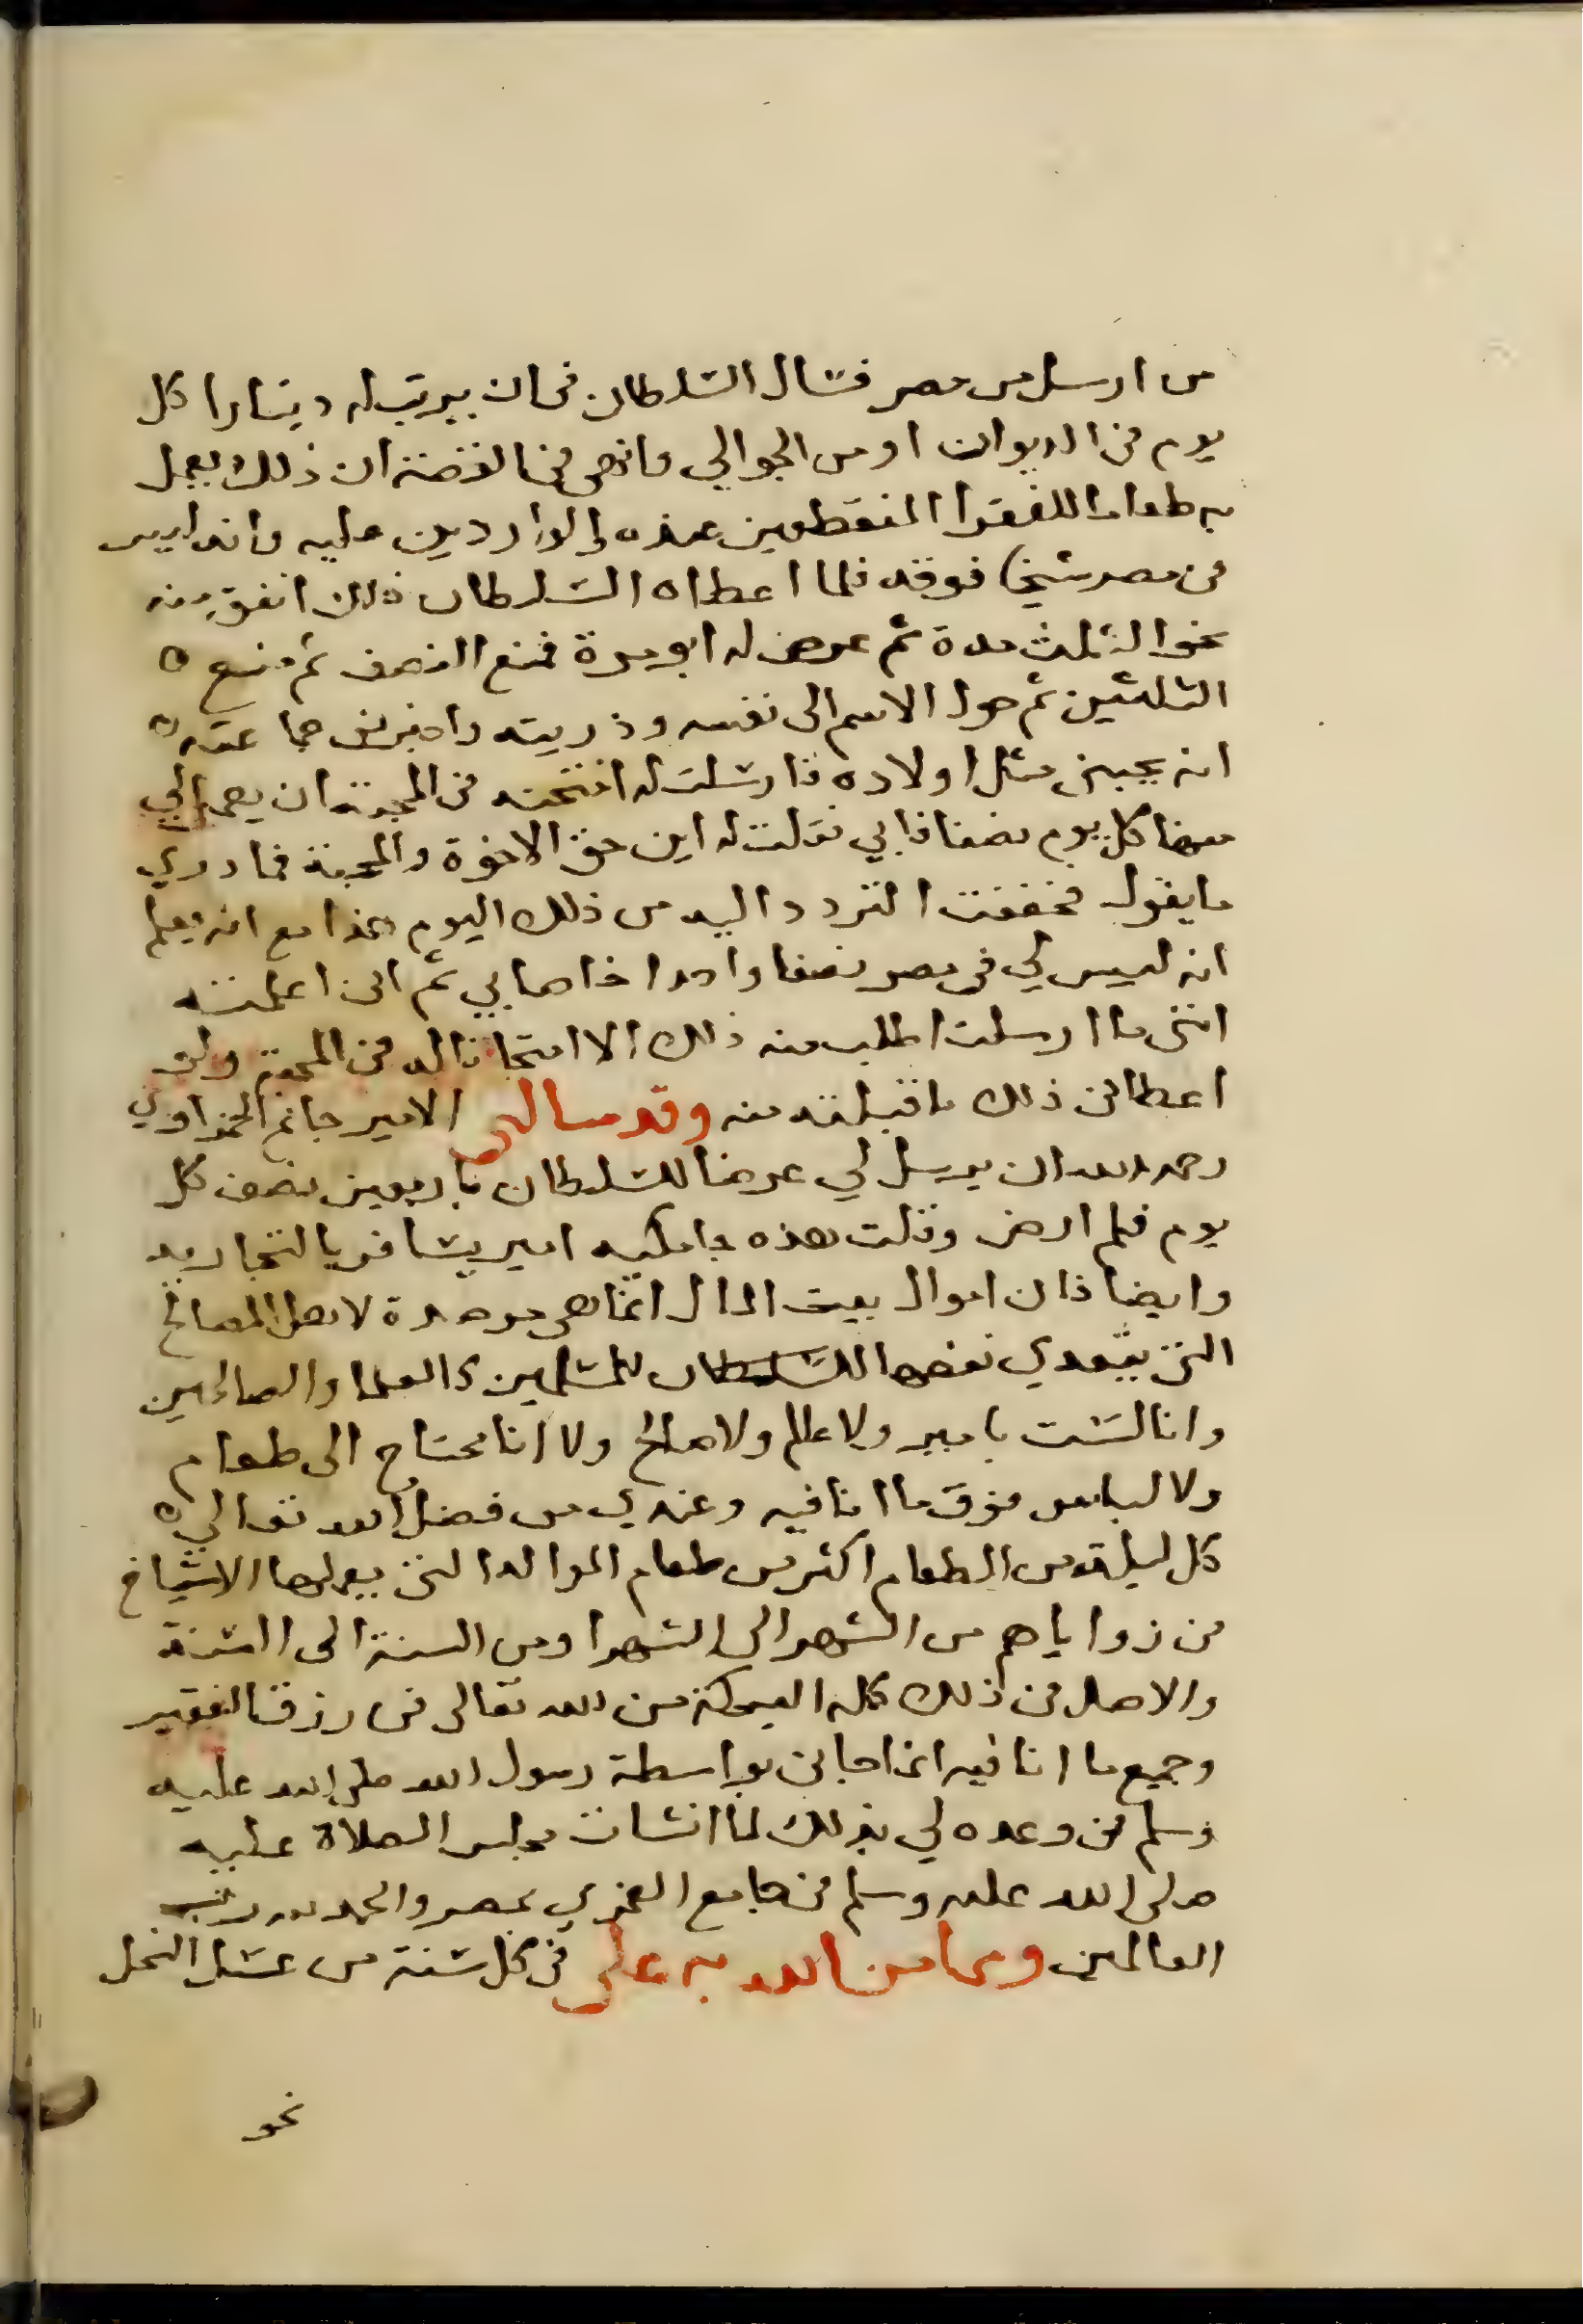 من ارسل من مصر فسال السلطان في ان يرتب له دينارا كل
يوم في الديوان او من الجوالي وانهى في القصة ان ذلك يعمل
به طعاما للفقرا المنقطعين عنده والواردين عليه وانه ليس
في مصر شيخا فوقه فلما اعطاه السلطان ذلك انفق منه
نحو الثلث مدة ثم عرض له ابو مرة فمنع النصف ثم منع
الثلثين ثم حول الاسم الى نفسه وذريته واخبرني جماعته
انه يحبني مثل اولاده فارسلت له امتحنه في المحبة ان يعمل لي
معها كل يوم نصفا فابي فقلت له اين حق الاخوة والمحبة فما دري
ما يقول فخففت التردد اليه من ذلك اليوم هذا مع انه يعلم
انه ليس لي في مصر نصفا واحدا خاصا بي ثم اني اعلمته
انني ما ارسلت اطلب منه ذلك الا امتحانا له في المحبة ولو
اعطاني ذلك ما قبلته منه وقد سالني الامير جانم الحمزاوي
رحمه الله ان يرسل لي عرضا للسلطان باربعين نصف كل
يوم فلم ارض وقلت هذه جامكية امير يسافر بالتجاريد
وايضا فان اموال بيت المال انما هي مرصدة لاهل المصالح
التي يتعدي نفعها للسلطان للمسلمين كالعلما والصالحين
وانا لست بامير ولا عالم ولا صالح ولا انا محتاج الى طعام
ولا لباس فوق ما انا فيه وعندي من فضل الله تعالي
كل ليلة من الطعام اكثر من طعام الموالد التي يعملها الاشياخ
في زواياهم من الشهر الى الشهر او من السنة الى السنة
والاصل في ذلك كله البركة من الله تعالى في رزق الفقير
وجميع ما انا فيه انما جاني بواسطة رسول الله صلى الله عليه
وسلم في وعده لي بذلك لما انشات مجلس الصلاة عليه
صلى الله عليه وسلم في جامع الغمري بمصر والحمد لله رب
العالمين ومما من الله به على في كل سنة من عسل النحل
نحو